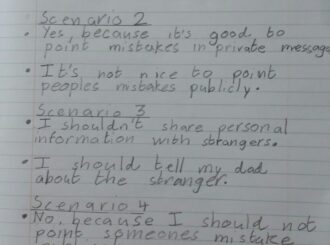 Scenario 2
• Yes, because it's good to
point mistakes in private messag
• It's not nice to point
peoples mistakes publicly.
Scenario 3
• I shouldn't share personal
information with strangers.
• I should tell my dad
about the stranger.
Scenario 4
• No, because I should not
point someones mistake